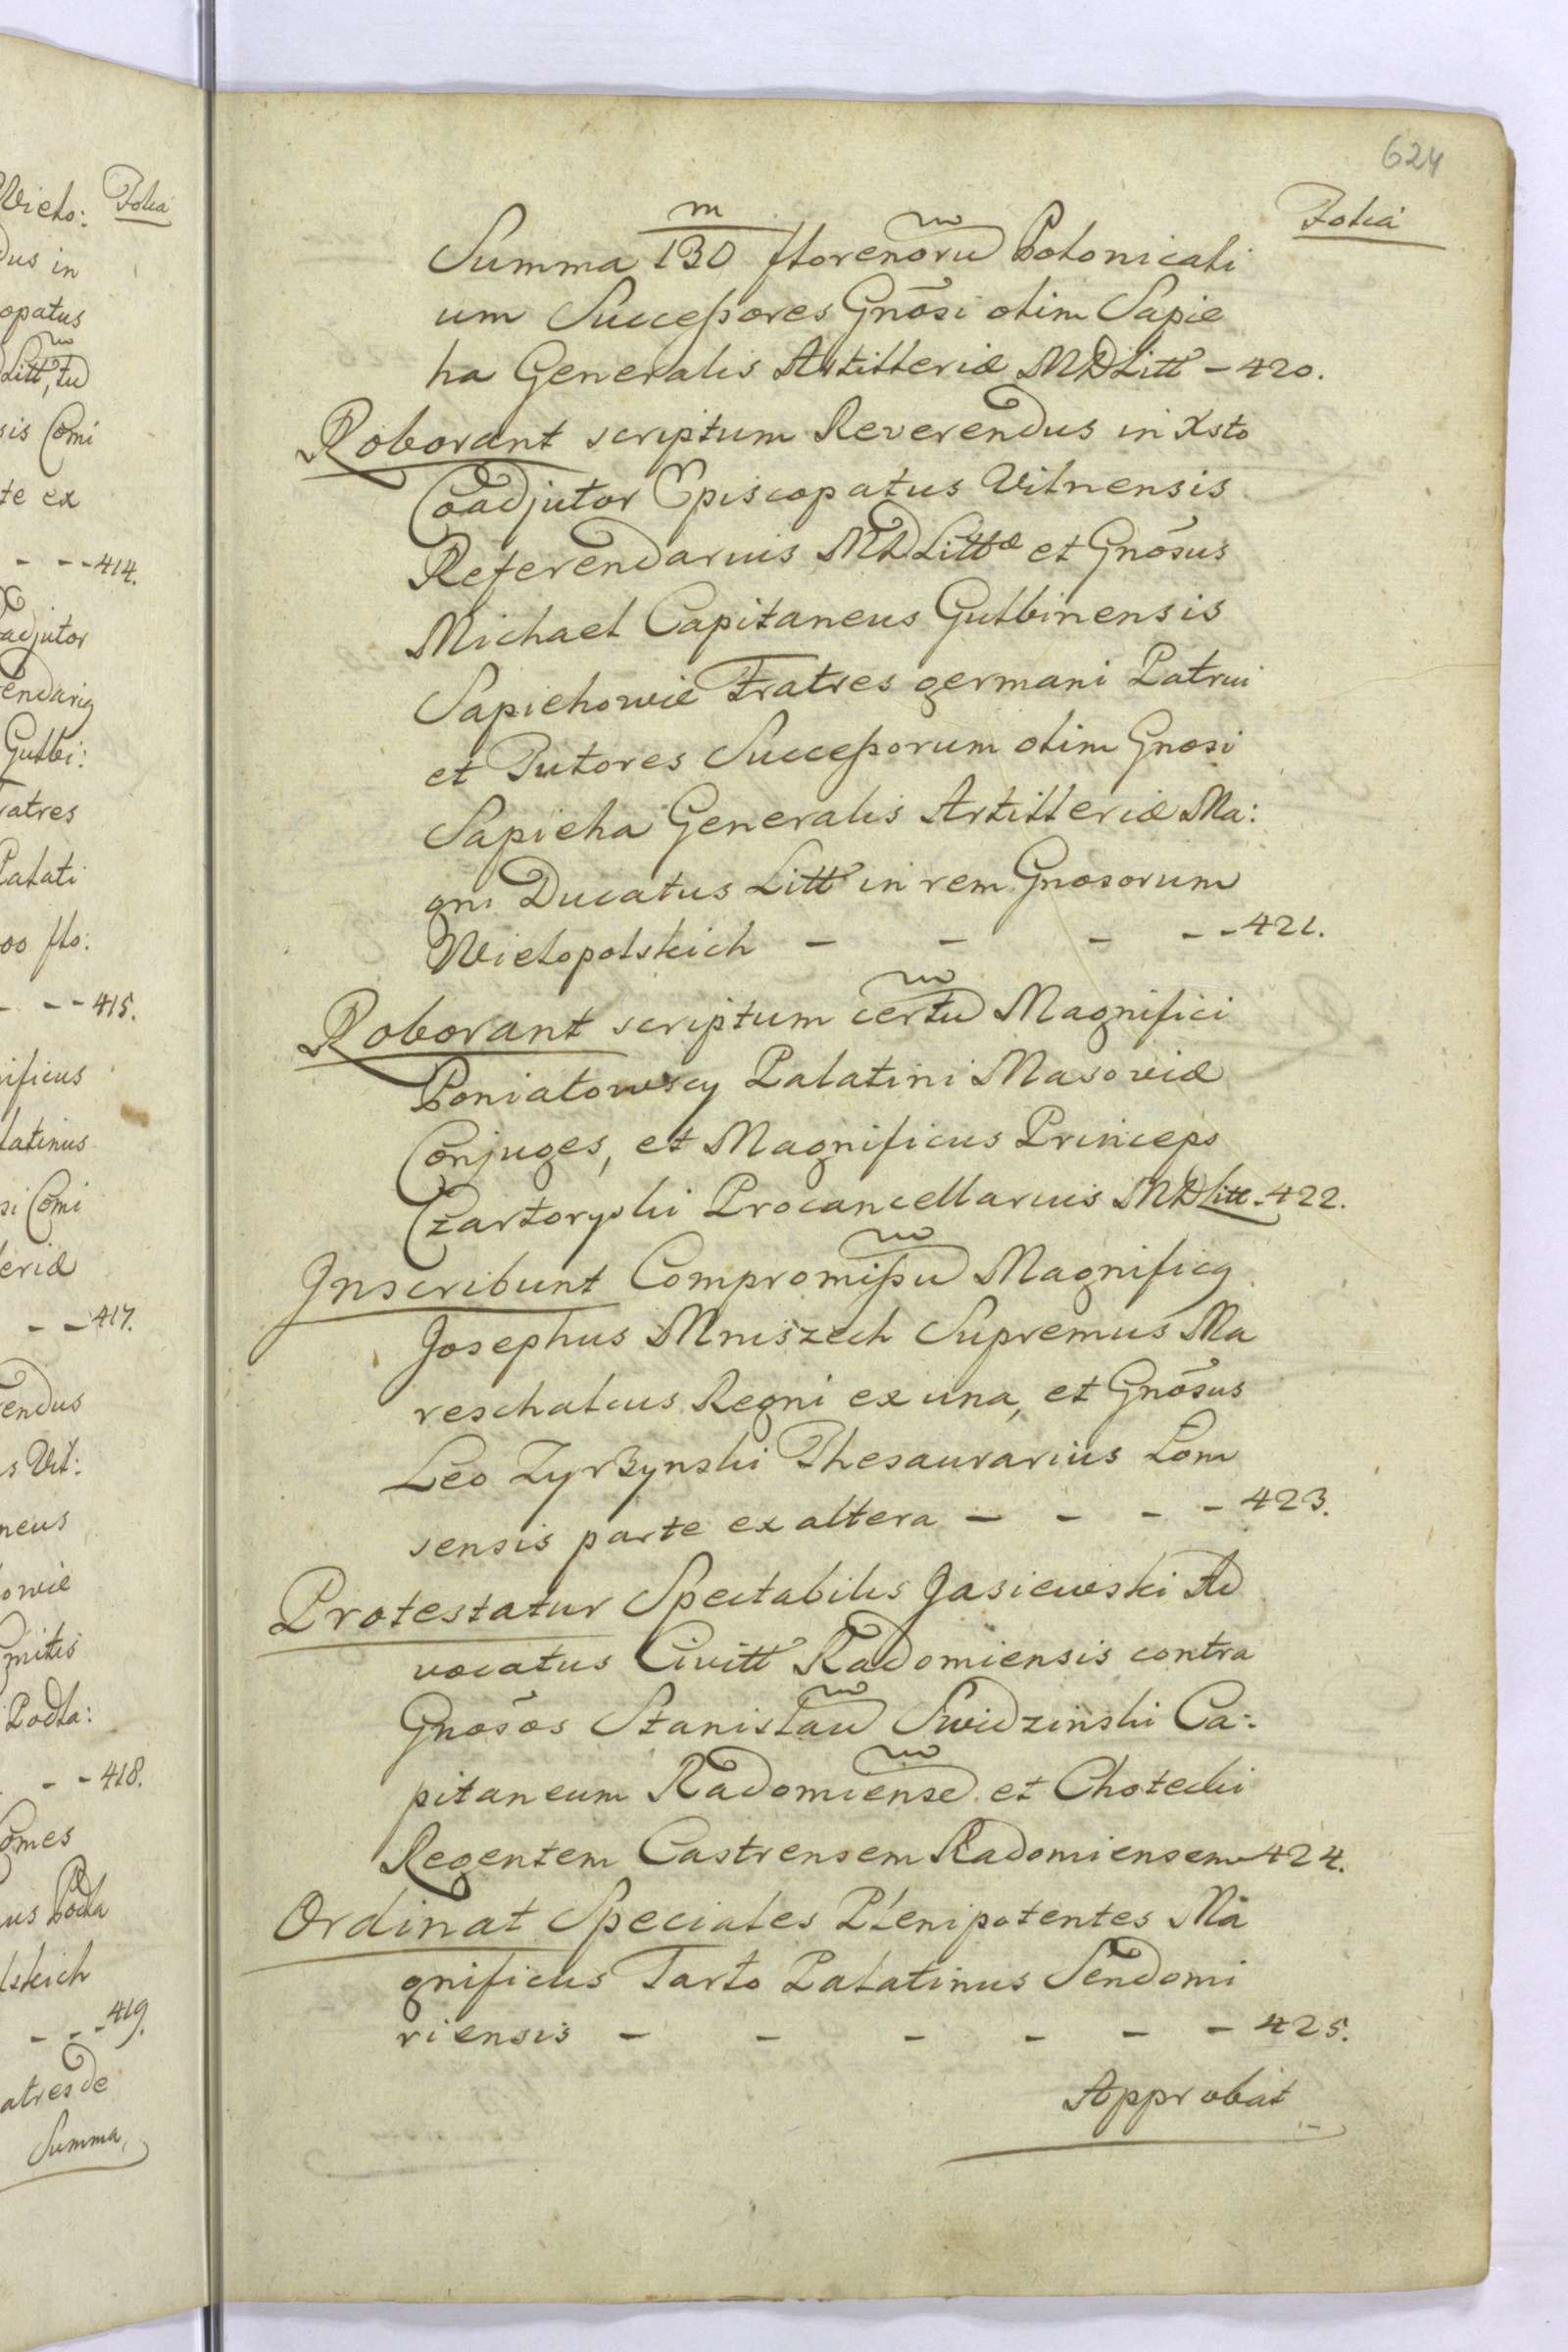 Wielo: Folia
dus in
opatus
Litt, tu
sis Comi
te ex
- - - 414.
adjutor
endarig
Gulbi:
ratres
Palati
00 flo:
- - - 415.
ificus
latinus
si Comi
eriæ
- - 417.
endus
s Vil:
neus
owie
mitis
Podla:
- - 418.
Comes
us Podla
lskich
- - - 419.
atres de
Summa,
624
Folia
m
Summa 130 florenorũ Polonicali
um Succeſsores Gnõsi olim Sapie
ha Generalis Artilleriæ MDLitt - 420.
Roborant scriptum Reverendus in Xsto
Coadjutor Episcopatus Vilnensis
Referendarius MDLittæ et Gnõsus
Michael Capitaneus Gulbinensis
Sapiehowie Fratres germani Patrui
et Tutores Succeſsorum olim Gnosi
Sapieha Generalis Artilleriæ Ma:
gni Ducatus Litt in rem Gnosorum
Wielopolskich - - - - - 421.
Roborant scriptum certũ Magnifici
Poniatowscy Palatini Masoviæ
Conjuges, et Magnificus Princeps
Czartoryski Procancellarius MDLitt - 422.
Inscribunt Compromiſsũ Magnificg
Josephus Mniszech Supremus Ma
reschalcus Regni ex una, et Gnõsus
Leo Zyrzynski Thesaurarius Lom
sensis parte ex altera - - - - 423.
Protestatur Spectabilis Jasiewski Ad
vocatus Civitt Radomiensis contra
Gnosõs Stanislaũ Swidzinski Ca:
pitaneum Radomiensẽ et Chotecki
Regentem Castrensem Radomiensem 424.
Ordinat Speciales Plenipotentes Ma
gnificus Tarlo Palatinus Sendomi
riensis - - - - - - 425.
Approbat